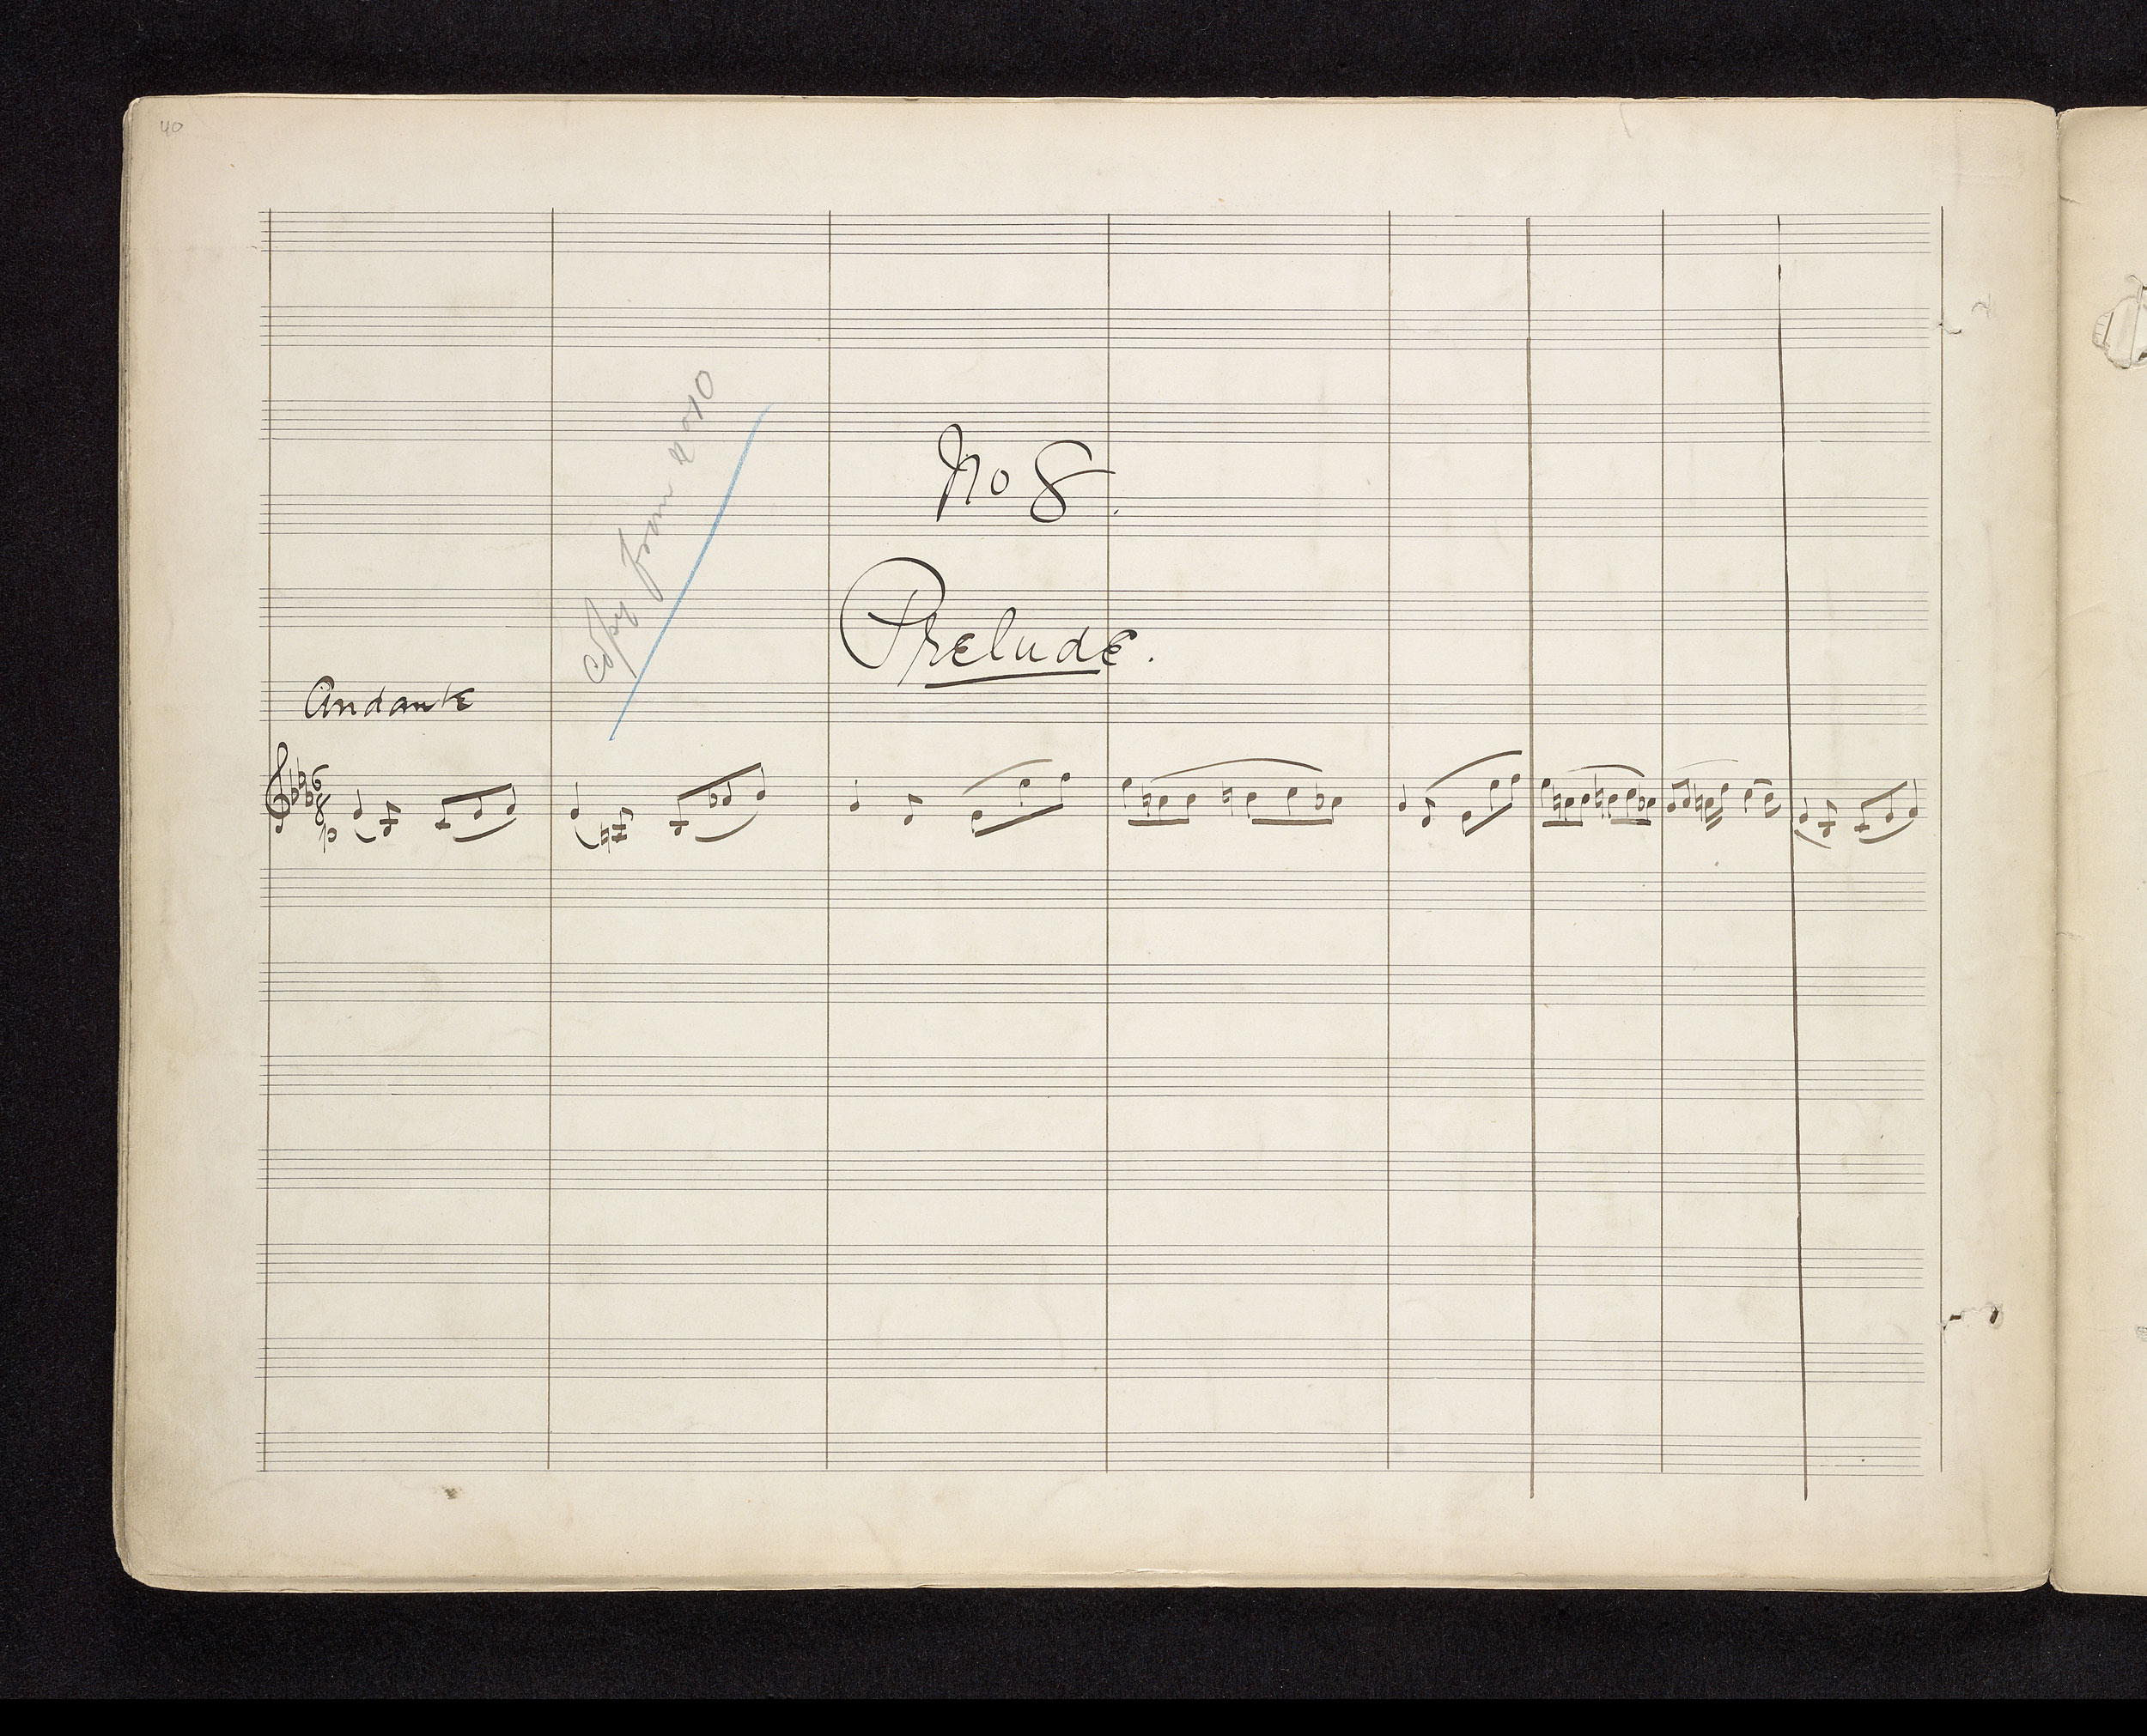 40
copy from no 10
No 8.
Prelude.
Andante
6
8
p